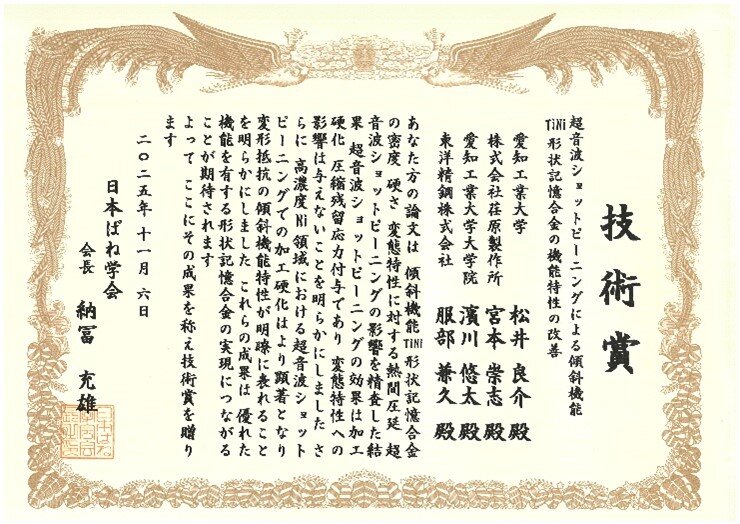 技術賞
超音波ショットピーニングによる傾斜機能
TiNi形状記憶合金の機能特性の改善
愛知工業大学 松井 良介 殿
株式会社荏原製作所 宮本 崇志 殿
愛知工業大学大学院 濱川 悠太 殿
東洋精鋼株式会社 服部 兼久 殿
あなた方の論文は 傾斜機能TiNi形状記憶合金
の密度 硬さ 変態特性に対する熱間圧延 超
音波ショットピーニングの影響を精査した結
果 超音波ショットピーニングの効果は加工
硬化 圧縮残留応力付与であり 変態特性への
影響は与えないことを明らかにしました さ
らに 高濃度Ni領域における超音波ショット
ピーニングでの加工硬化はより顕著となり
変形抵抗の傾斜機能特性が明瞭に表れること
を明らかにしました これらの成果は 優れた
機能を有する形状記憶合金の実現につながる
ことが期待されます
よって ここにその成果を称え技術賞を贈り
ます
二〇二五年 十一月 六日
日本ばね学会
会長 納冨 充雄